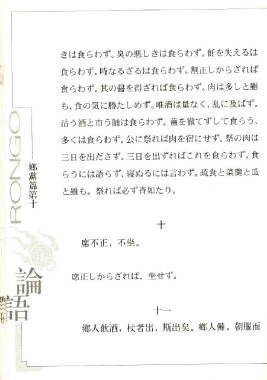 きは食らわず。臭の悪しきは食らわず。飪を失えるは
食らわず。時なるざるは食らわず。割正しからざれば
食らわず。其の醤を得ざれば食らわず。肉は多しと雖
も、食の気に勝たしめず。唯酒は量なく、乱に及ばず。
沽う酒と市う脯は食らわず。薑を徹てずして食らう、
多くは食らわず。公に祭れば肉を宿にせず。祭の肉は
三日を出ださず。三日を出ずればこれを食らわず。食
らうには語らず、寝ぬるには言わず。疏食と菜羹と瓜
と雖も、祭れば必ず斉如たり。
十
席不正，不坐。
席正しからざれば、坐せず。
十一
鄉人飲酒，杖者出，斯出矣。鄉人儺，朝服而
RONGO
鄉黨篇第十
論語